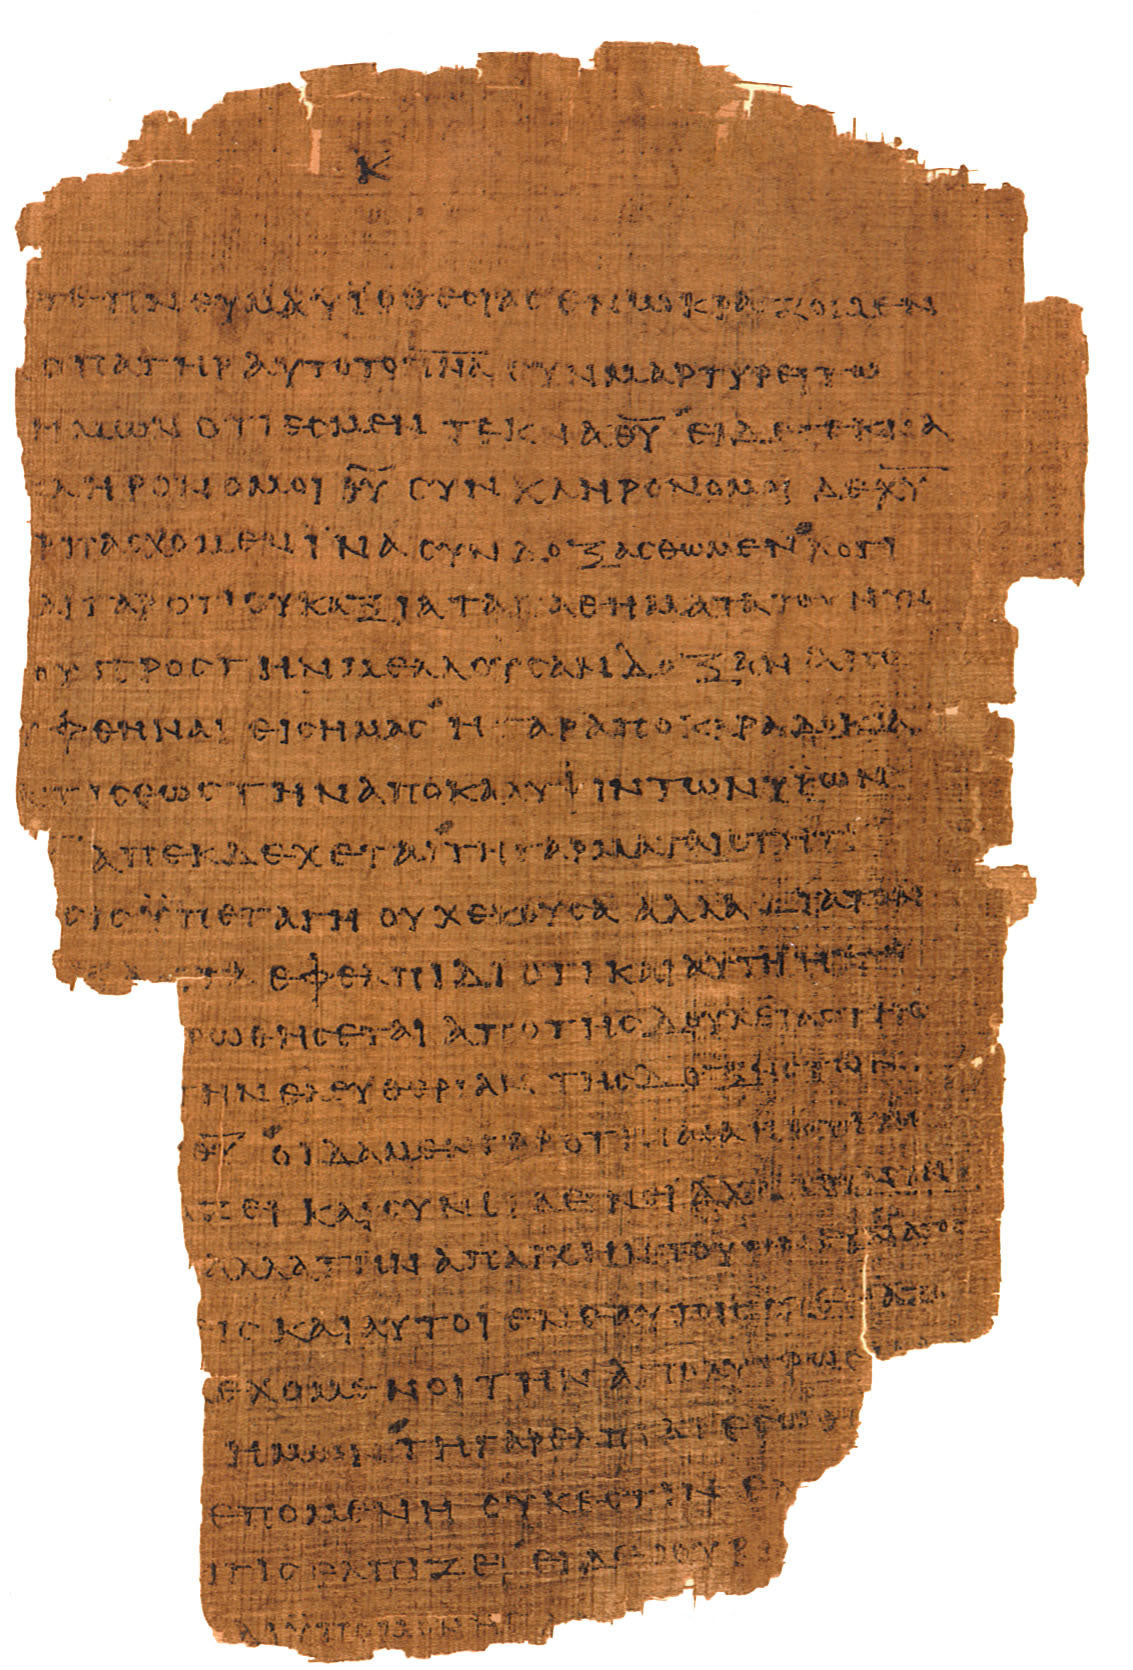 Κ
ΤΕ ΠΝΟΥΜΑ ΥΪΟΘΕΣΙΑΣ ΕΝ Ω ΚΡΑΖΟΜΕΝ
Ο ΠΑΤΗΡ ΑΥΤΟ ΤΟ Π̅Ν̅Α̅ ΣΥΝΜΑΡΤΥΡΕΙ ΤΩ
ΗΜΩΝ ΟΤΙ ΕΣΜΕΝ ΤΕΚΝΑ Θ̅Υ̅ ΕΙ ΔΕ ΤΕΚΝΑ
ΚΛΗΡΟΝΟΜΟΙ Θ̅Υ̅ ΣΥΝΚΛΗΡΟΝΟΜΟΙ ΔΕ Χ̅Υ̅
ΠΑΣΧΟΜΕΝ ΪΝΑ ΣΥΝΔΟΞΑΣΘΩΜΕΝ ΛΟΓΙ
ΑΙ ΓΑΡ ΟΤΙ ΟΥΚ ΑΞΙΑ ΤΑ ΠΑΘΗΜΑΤΑ ΤΟΥ ΝΥΝ
ΟΥ ΠΡΟΣ ΤΗΝ ΜΕΛΛΟΥΣΑΝ ΔΟΞΑΝ ΑΠΟ
ΦΘΗΝΑΙ ΕΙΣ ΗΜΑΣ Η ΓΑΡ ΑΠΟΚΑΡΑΔΟΚΙΑ
ΚΤΙΣΕΩΣ ΤΗΝ ΑΠΟΚΑΛΥΨΙΝ ΤΩΝ ΥΪΩΝ
ΑΠΕΚΔΕΧΕΤΑΙ ΤΗ ΓΑΡ ΜΑΤΑΙΟΤΗΤΙ
ΣΙΣ ΫΠΕΤΑΓΗ ΟΥΧ ΕΚΟΥΣΑ ΑΛΛΑ ΔΙΑ ΤΟΝ
ΕΦ ΕΛΠΙΔΙ ΟΤΙ ΚΑΙ ΑΥΤΗ Η
ΡΩΘΗΣΕΤΑΙ ΑΠΟ ΤΗΣ ΔΟΥΛΕΙΑΣ ΤΗΣ
ΤΗΝ ΕΛΕΥΘΕΡΙΑΝ ΤΗΣ ΔΟΞΗΣ ΤΩΝ
Θ̅Υ̅ ΟΙΔΑΜΕΝ ΓΑΡ ΟΤΙ ΠΑΣΑ Η ΚΤΙΣΙΣ
ΖΕΙ ΚΑΙ ΣΥΝ ΑΧΡΙ ΤΟΥ ΝΥΝ
ΑΛΛΑ ΤΗΝ ΑΠΑΡΧΗΝ ΤΟΥ ΠΝΕΥΜΑΤΟΣ
ΤΕΣ ΚΑΙ ΑΥΤΟΙ ΕΝ ΕΑΥΤΟΙΣ ΣΤΕΝΑΖΟ
ΔΕΧΟΜΕΝΟΙ ΤΗΝ ΑΠΟΛΥΤΡΩΣΙ
ΗΜΩΝ ΤΗ ΓΑΡ ΕΛΠΙΔΙ ΕΣΩΘΗ
ΕΠΟΜΕΝΗ ΟΥΚ ΕΣΤΙΝ Ε
ΤΙΣ ΕΛΠΙΖΕΙ ΕΙ ΔΕ Ο ΟΥ Β
ΔΙ ΥΠΟΜΟΝΗΣ